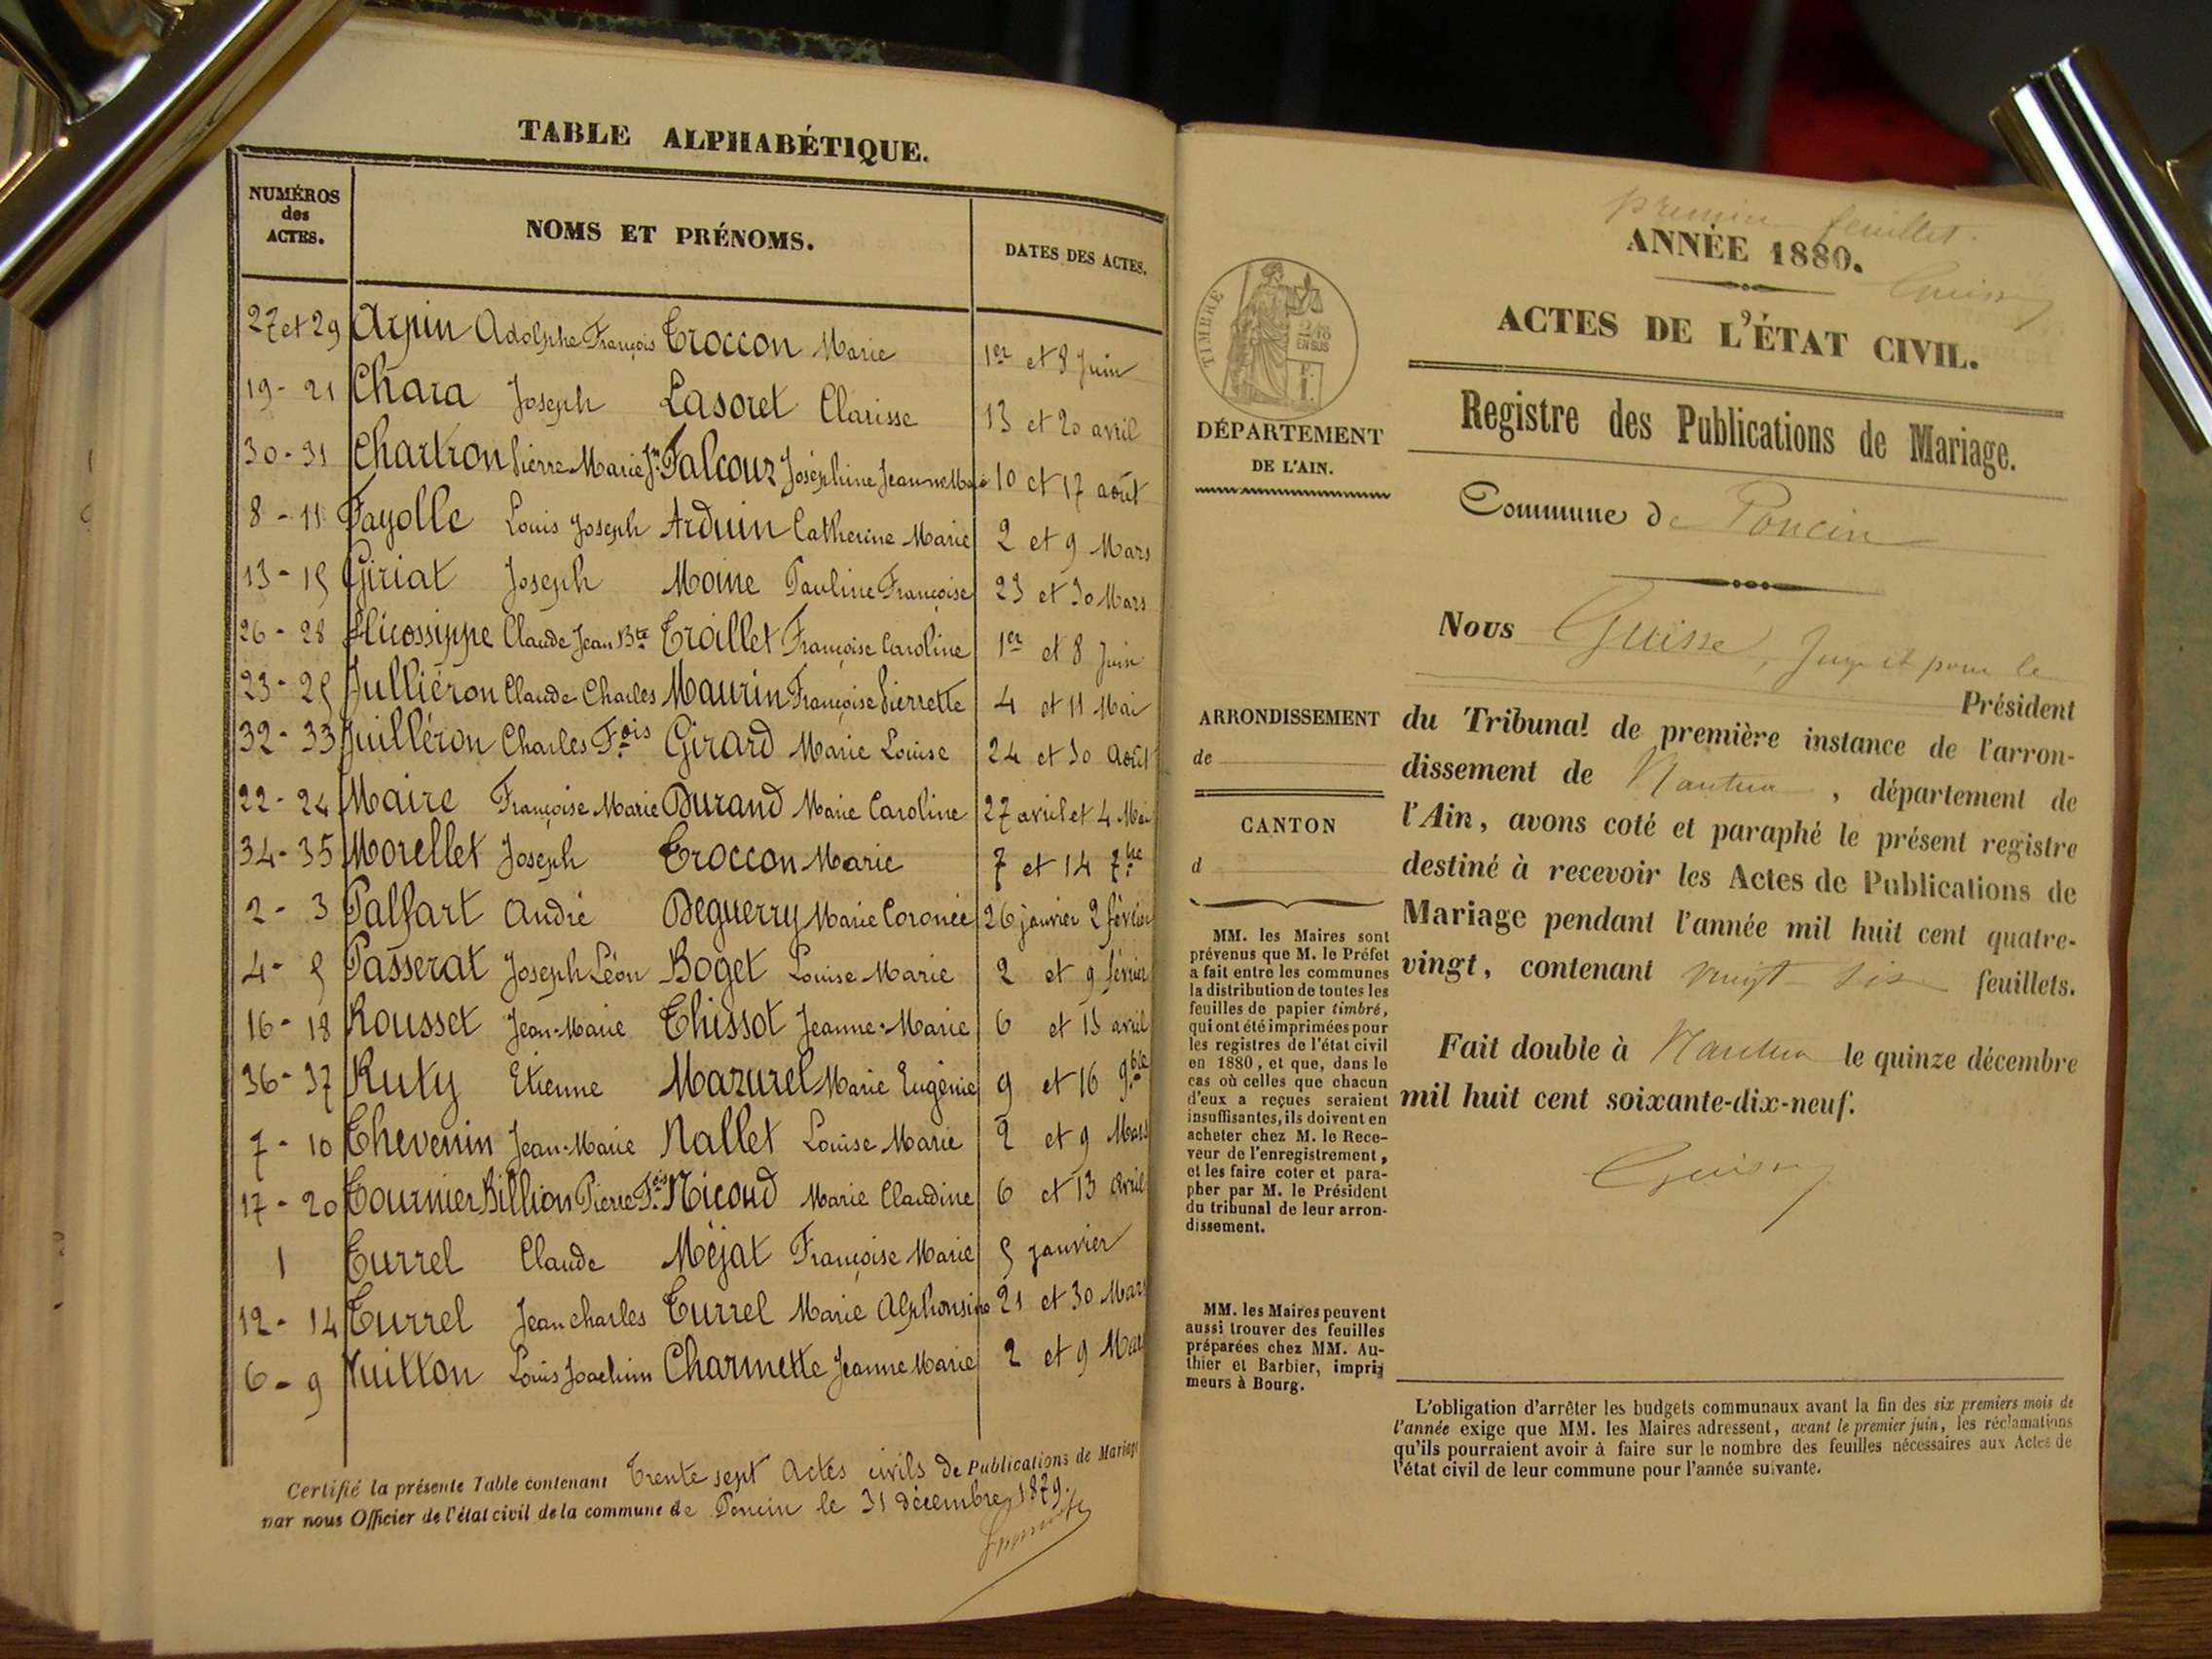 TABLE ALPHABÉTIQUE.
NUMÉROS
des
ACTES.
NOMS ET PRÉNOMS.
DATES DES ACTES.
27 et 29 Arpin Adolphe François Troccon Marie 1er et 8 Juin
19 - 21 Chara Joseph Lasoret Clarisse 13 et 20 avril
30 - 31 Chartron Pierre Marie Jn Falcouz Joséphine Jeanne Marie 10 et 17 août
8 - 11 Fayolle Louis Joseph Arduin Catherine Marie 2 et 9 Mars
13 - 15 Giriat Joseph Moine Pauline Françoise 23 et 30 Mars
26 - 28 Hicossippe Claude Jean Bte Troillet Françoise Caroline 1er et 8 Juin
23 - 25 Julliéron Claude Charles Maurin Françoise Pierrette 4 et 11 Mai
32 - 33 Juilléron Charles Fois Girard Marie Louise 24 et 30 Août
22 - 24 Maire Françoise Marie Durand Marie Caroline 27 avril et 4 Mai
34 - 35 Morellet Joseph Troccon Marie 7 et 14 7bre
2 - 3 Palfart André Deguerry Marie Coronée 26 janvier 2 février
4 - 5 Passerat Joseph Léon Boget Louise Marie 2 et 9 février
16 - 18 Rousset Jean-Marie Thissot Jeanne-Marie 6 et 13 avril
36 - 37 Ruty Etienne Mazurel Marie Eugénie 9 et 16 9bre
7 - 10 Thevenin Jean-Marie Nallet Louise Marie 2 et 9 Mars
17 - 20 Tournier Billion Pierre Fois Nicoud Marie Claudine 6 et 13 avril
1 Turrel Claude Méjat Françoise Marie 5 janvier
12 - 14 Turrel Jean Charles Turrel Marie Alphonsine 21 et 30 Mars
6 - 9 Vuitton Louis Joachim Charmette Jeanne Marie 2 et 9 Mars
Certifié la présente Table contenant Trente sept Actes civils de Publications de Mariage
par nous Officier de l'état civil de la commune de Poncin le 31 décembre 1879.
premier feuillet.
ANNÉE 1880.
ACTES DE L'ÉTAT CIVIL.
TIMBRE
2/10
EN SUS
Registre des Publications de Mariage.
DÉPARTEMENT
DE L'AIN.
Commune de Poncin
Nous Guisse, Juge et pour le
Président
du Tribunal de première instance de l'arron-
dissement de Nantua, département de
l'Ain, avons coté et paraphé le présent registre
destiné à recevoir les Actes de Publications de
Mariage pendant l'année mil huit cent quatre-
vingt, contenant vingt six feuillets.
Fait double à Nantua le quinze décembre
mil huit cent soixante-dix-neuf.
ARRONDISSEMENT
de
CANTON
d
MM. les Maires sont
prévenus que M. le Préfet
a fait entre les communes
la distribution de toutes les
feuilles de papier timbré,
qui ont été imprimées pour
les registres de l'état civil
en 1880, et que, dans le
cas où celles que chacun
d'eux a reçues seraient
insuffisantes, ils doivent en
acheter chez M. le Rece-
veur de l'enregistrement,
et les faire coter et para-
pher par M. le Président
du tribunal de leur arron-
dissement.
MM. les Maires peuvent
aussi trouver des feuilles
préparées chez MM. Au-
thier et Barbier, impri-
meurs à Bourg.
L'obligation d'arrêter les budgets communaux avant la fin des six premiers mois de
l'année exige que MM. les Maires adressent, avant le premier juin, les réclamations
qu'ils pourraient avoir à faire sur le nombre des feuilles nécessaires aux Actes de
l'état civil de leur commune pour l'année suivante.